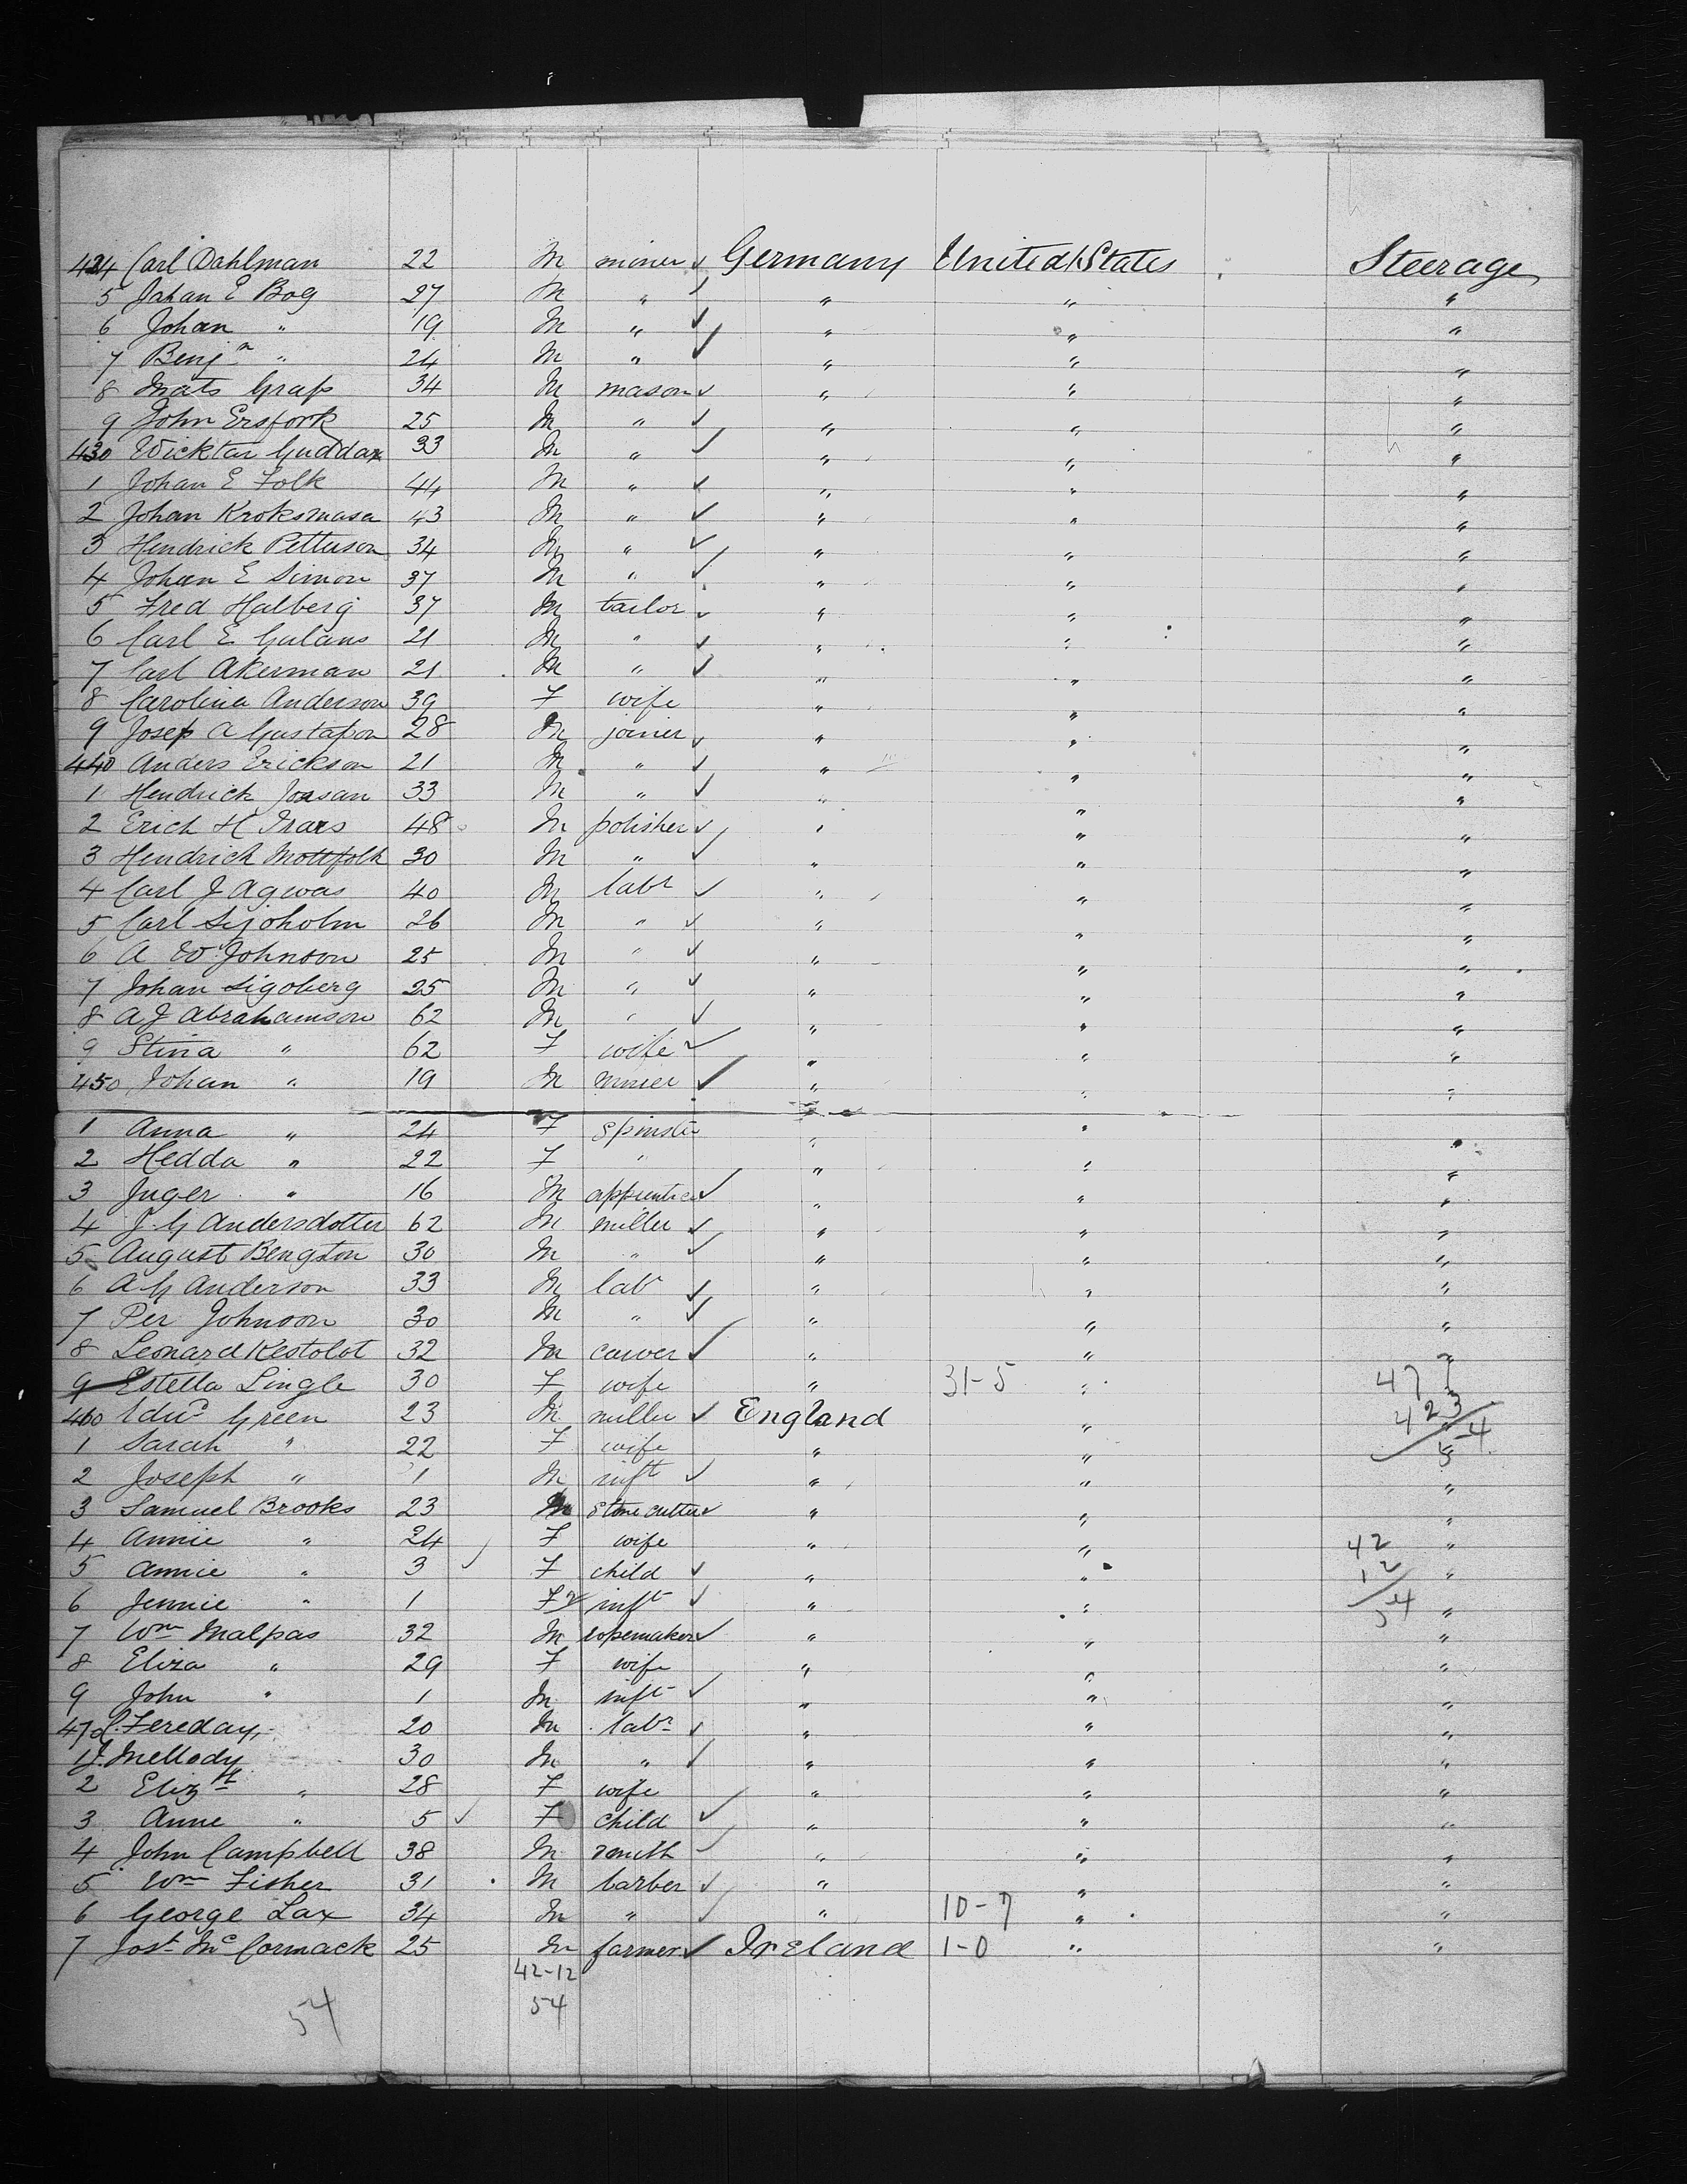 424 Carl Dahlman 22 M miner Germany United States Steerage
5 Johan E Bog 27 M " " " "
6 Johan " 19 M " " " "
7 Benjn " 24 M " " " "
8 Mats Grass 34 M mason " " "
9 John Ersfork 25 M " " " "
430 Wicktar Guddar 33 M " " " "
1 Johan E Folk 44 M " " " "
2 Johan Kroksmasa 43 M " " " "
3 Hendrick Petterson 34 M " " " "
4 Johan E Simon 37 M " " " "
5 Fred Halberg 37 M tailor " " "
6 Carl E Gulans 21 M " " " "
7 Carl Akerman 21 M " " " "
8 Carolina Anderson 39 F wife " " "
9 Josep A Gustafson 28 M joiner " " "
440 Anders Erickson 21 M " " " "
1 Hendrick Joasan 33 M " " " "
2 Erich H 48 M polisher " " "
3 Hendrick Mottfolk 30 M " " " "
4 Carl J Agwas 40 M labr " " "
5 Carl Sijoholm 26 M " " " "
6 A W Johnson 25 M " " " "
7 Johan Sigoberg 25 M " " " "
8 A J Abrahamson 62 M " " " "
9 Stina " 62 F wife " " "
450 Johan " 19 M miner " " "
1 Anna " 24 F spinster " " "
2 Hedda " 22 F " " " "
3 Juger " 16 M apprentice " " "
4 J. G Andersdotter 62 M miller " " "
5 August Bengston 30 M " " " "
6 A G Anderson 33 M labr " " "
7 Per Johnson 30 M " " " "
8 Leonard Kestolot 32 M carver " " "
9 Estella Lingle 30 F wife " 31-5 " 477
460 Edwd Green 23 M miller England " 423
1 Sarah " 22 F wife " " 54
2 Joseph " 1 M inft " " "
3 Samuel Brooks 23 M Stone cutter " " "
4 Annie " 24 F wife " " 42 "
5 Annie " 3 F child " " 12 "
6 Jennie " 1 F inft " " 54 "
7 Wm Malpas 32 M ropemaker " " "
8 Eliza " 29 F wife " " "
9 John " 1 M inft " " "
470 Fereday 20 M labr " " "
1 J. Mellody 30 M " " " "
2 Elizth " 28 F wife " " "
3 Anne " 5 F child " " "
4 John Campbell 38 M smith " " "
5 Wm Fisher 31 M barber " " "
6 George Lax 34 M " " 10-7 " "
7 Jost McCormack 25 M farmer Ireland 1-0 " "
42-12
54 54